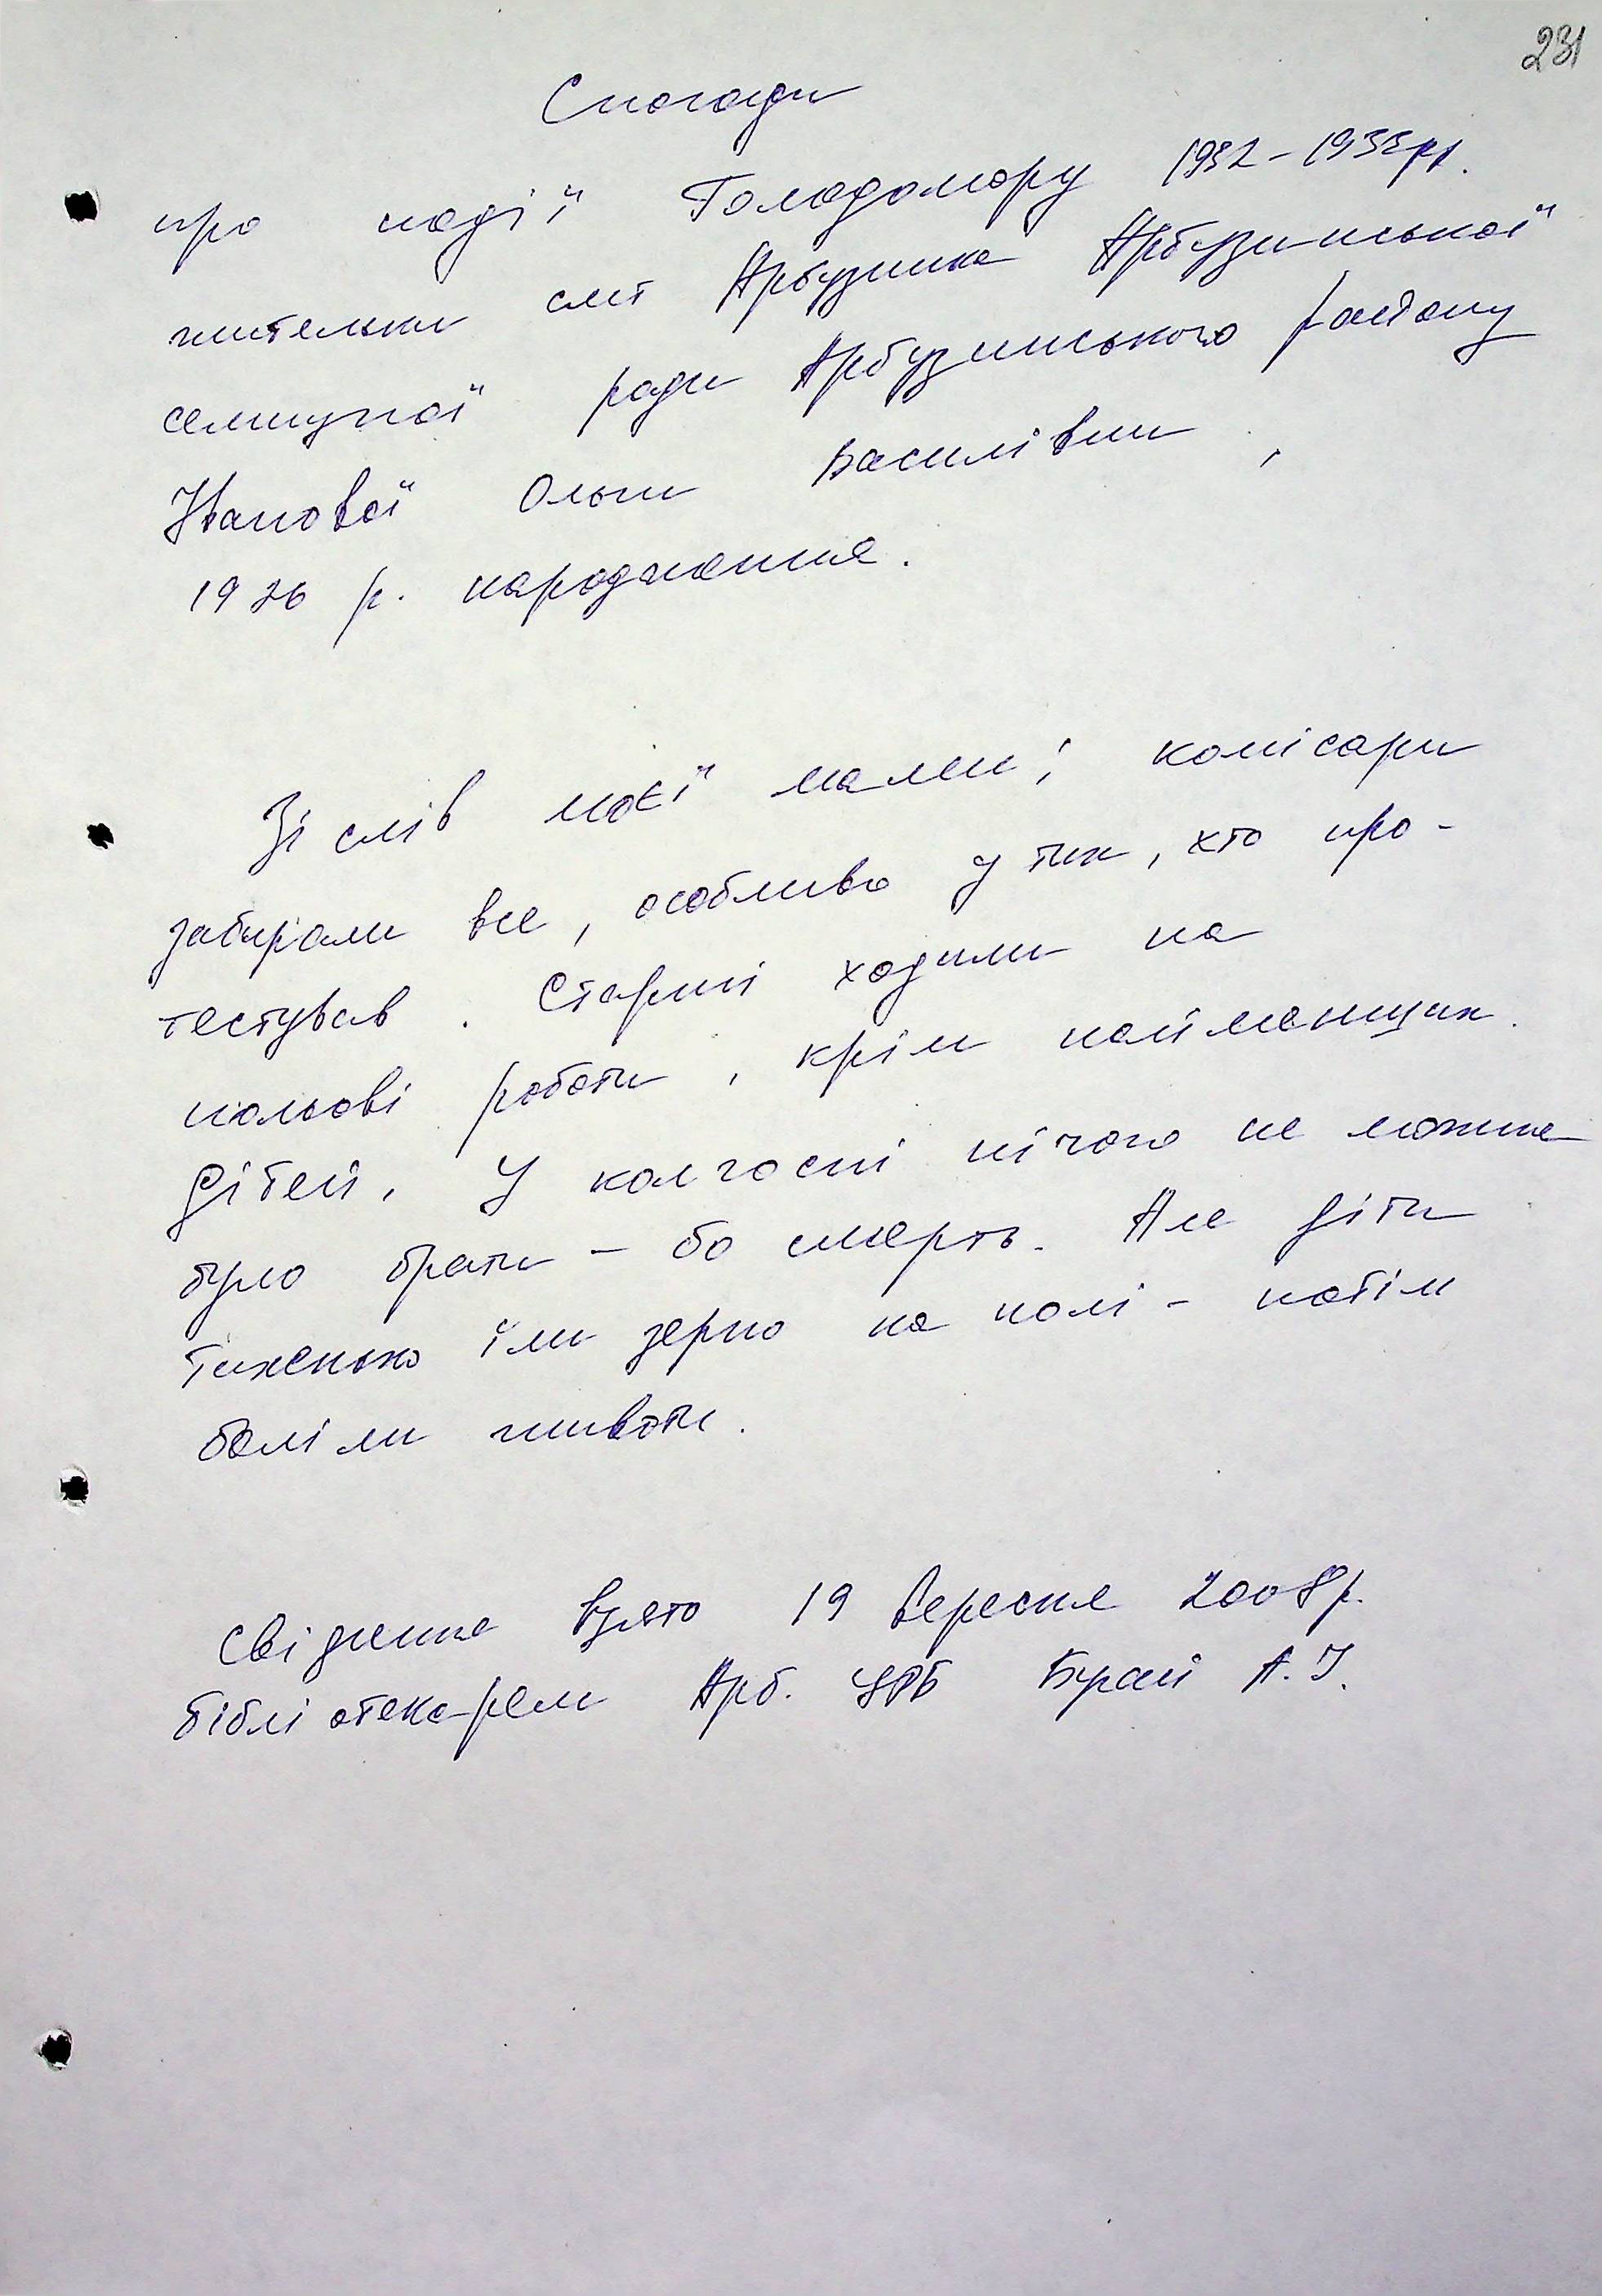 231
Спогади
про події Голодомору 1932-1933рр.
жительки смт Арбузинка Арбузинської
селищної ради Арбузинського району
Іванової Ольги Василівни,
1926 р. народження.
Зі слів моєї мами; комісари
забирали все, особливо у тих, хто про-
тестував. Старші ходили на
польові роботи, крім найменших
дітей. У колгоспі нічого не можна
було брати - бо смерть. Але діти
тихенько їли зерно на полі - потім
боліли животи.
Свідчення взято 19 вересня 2008р.
бібліотекарем Арб. ЦРБ А.І.